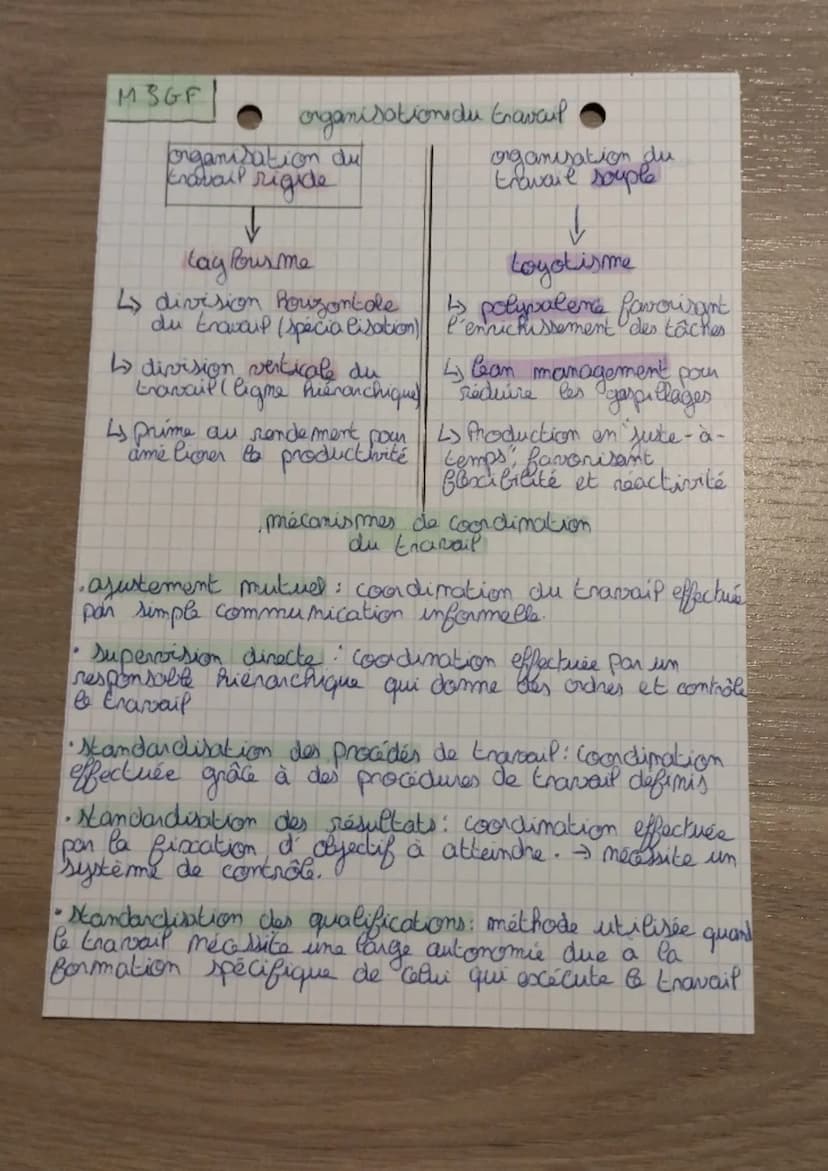 MSGF
organisation du travail
organisation du
travail rigide
taylorisme
↳ division horizontale
du travail (spécialisation)
↳ division verticale du
travail (ligne hiérarchique)
↳ prime au rendement pour
améliorer la productivité
organisation du
travail souple
toyotisme
↳ polyvalence favorisant
l'enrichissement des tâches
↳ lean management pour
réduire les gaspillages
↳ Production en "juste-à-
temps", favorisant
flexibilité et réactivité
mécanismes de coordination
du travail
• ajustement mutuel : coordination du travail effectuée
par simple communication informelle.
• supervision directe : coordination effectuée par un
responsable hiérarchique qui donne des ordres et contrôle
le travail
• standardisation des procédés de travail : coordination
effectuée grâce à des procédures de travail définis
• standardisation des résultats : coordination effectuée
par la fixation d'objectif à atteindre. → nécessite un
système de contrôle.
• standardisation des qualifications : méthode utilisée quand
le travail nécessite une large autonomie due à la
formation spécifique de celui qui exécute le travail